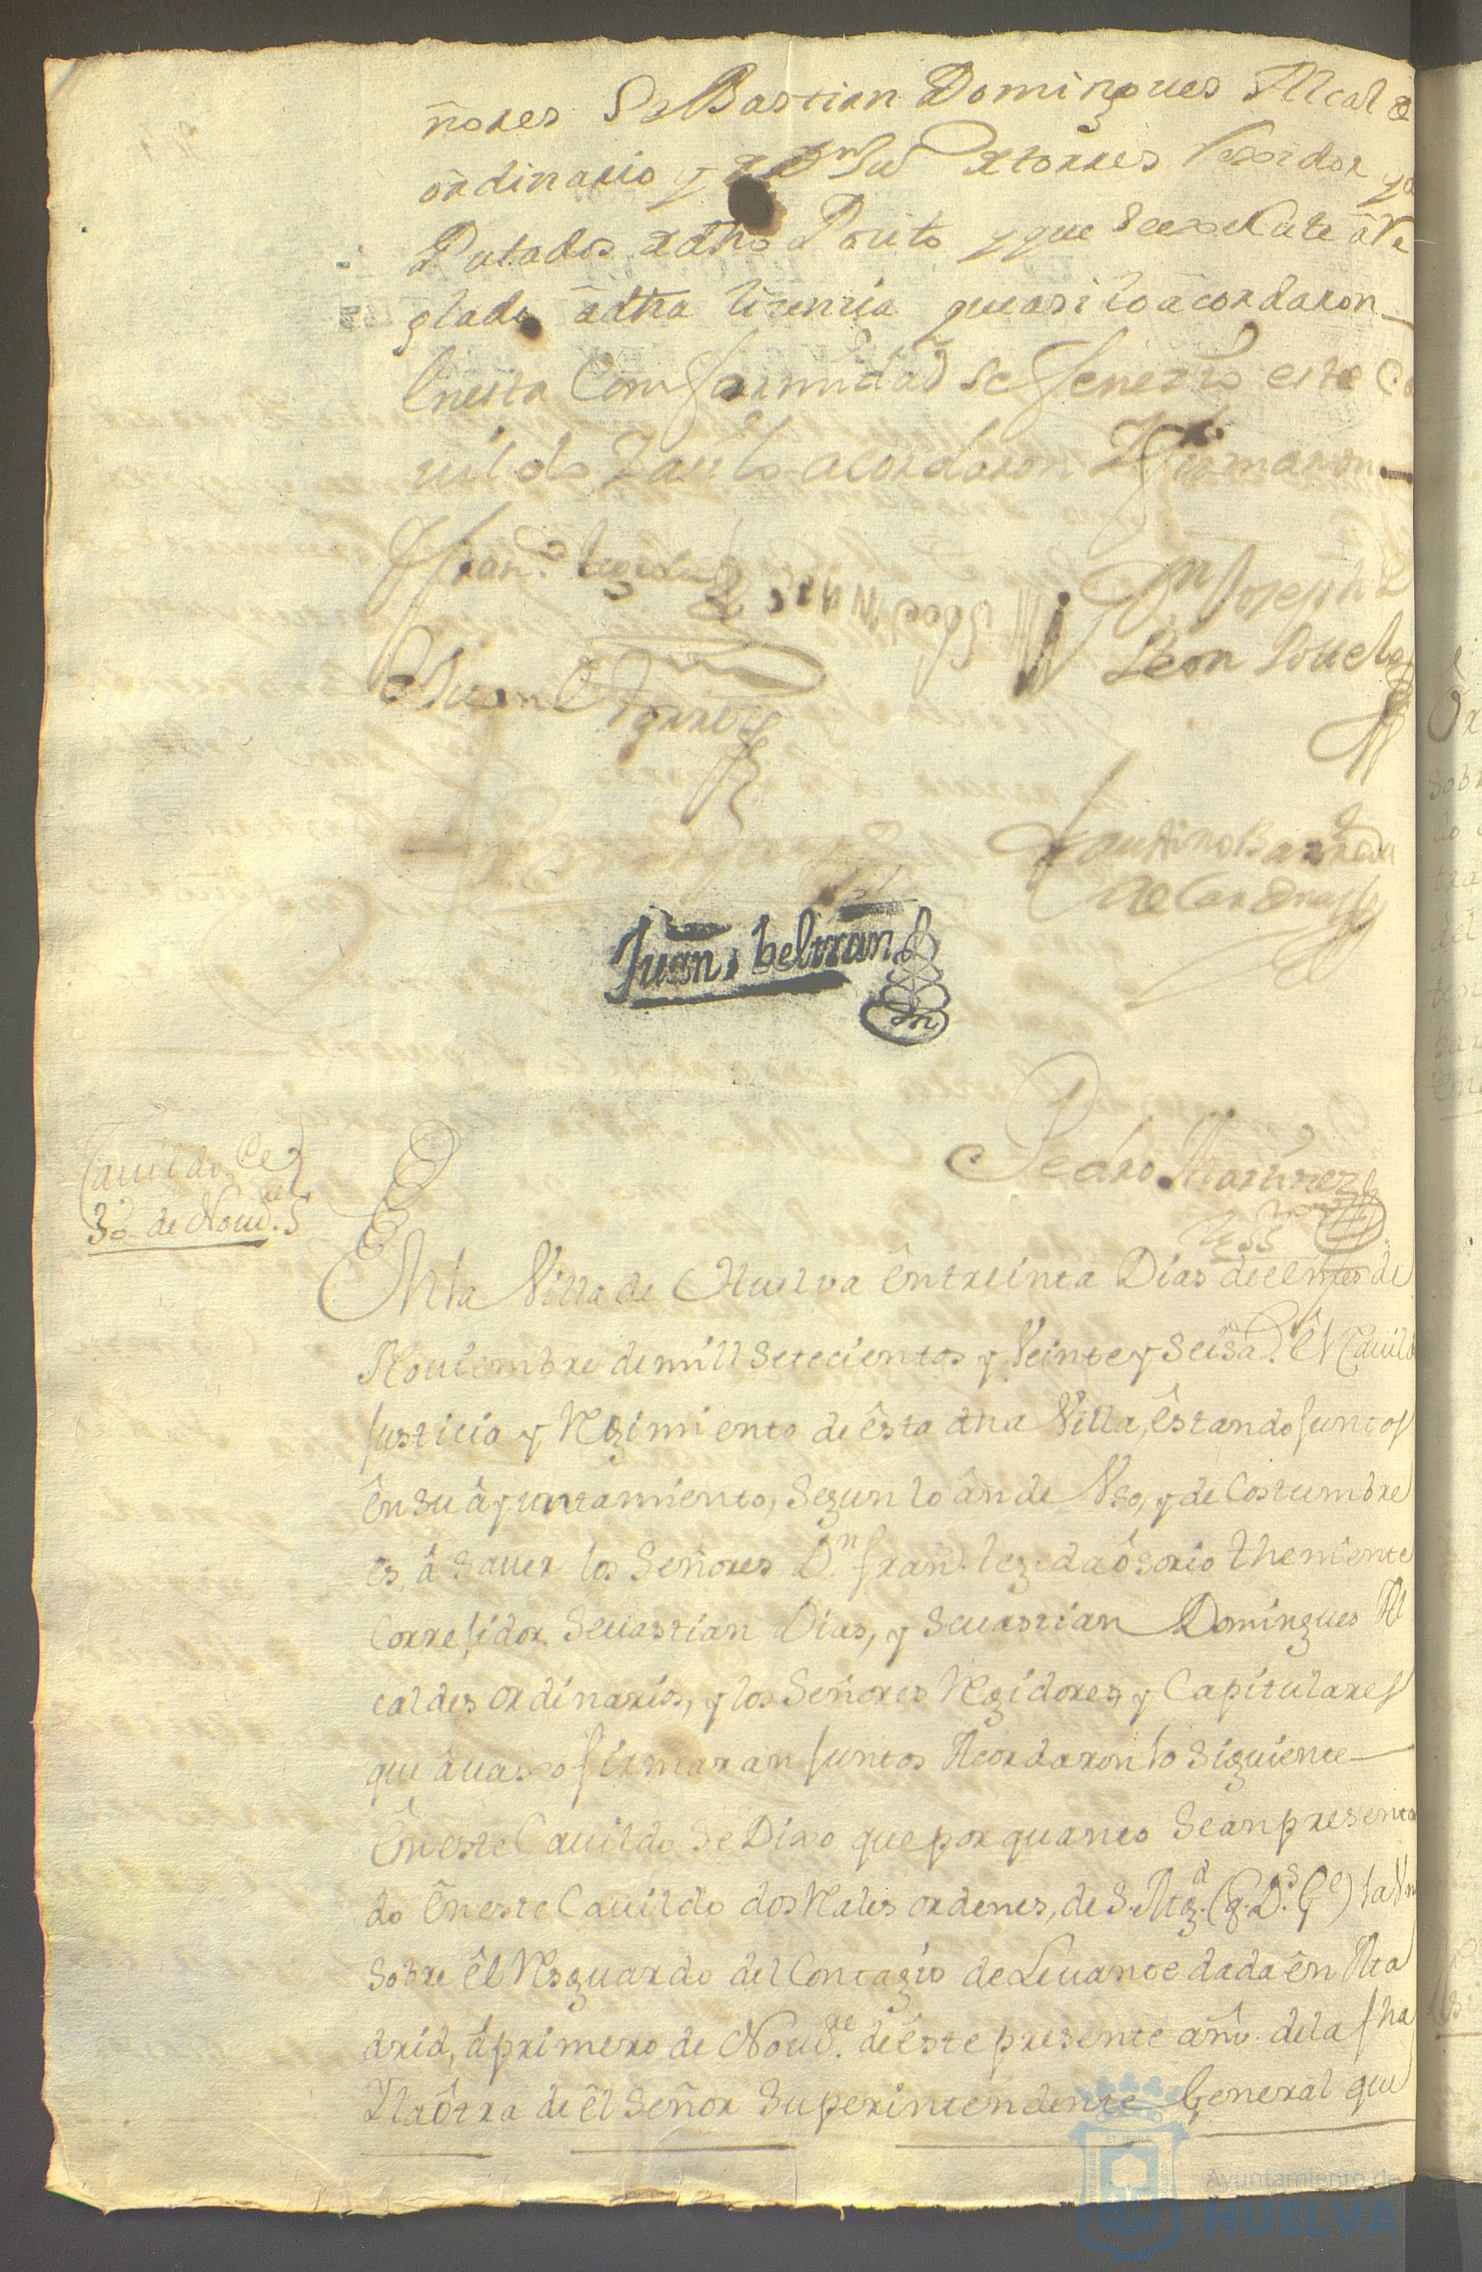 ñores Sebastian Domingues Alcalde
ordinario y Juan de torres Rexidor y de
Putados de dho Posito y que se execute arre
glado a dha lizenzia que asi lo acordaron
En esta Comformidad se fenezio este Ca
uildo Y asi lo acordaron Y firmaron
Fran.co
Jn Joseph de
Leon
Juan de torres
faustino Barreda
de Cardenas
Juan, beltran
Pedro Martinez
Cauildo de
30 de Noure.
En la Villa de Huelva en treinta Dias de el mes de
Nouiembre de mill Setecientos y Veinte y Seis a.s el Cauildo
Justicia y Regimiento de esta dha Villa, estando Juntos
en su ayuntamiento, Segun lo an de Vso, y de Costumbre
es, a Sauer los Señores Dn. fran.co osorio theniente
Corregidor. Seuastian Dias, y Seuastian Domingues Al
caldes ordinarios, y los Señores Regidores y Capitulares
que auaxo firmaran Juntos Acordaron lo Siguiente
En este Cauildo se Dixo que por quanto Se an presenta
do en este Cauildo dos Rales ordenes, de S. Mgd. (q. Ds. Ge) la Vna
Sobre el Resguardo del Contagio de Leuante dada en Ma
drid, a primero de Noure. de este presente año de la fha
Y la otra de el Señor Superintendente General que
Ayuntamiento de
HUELVA